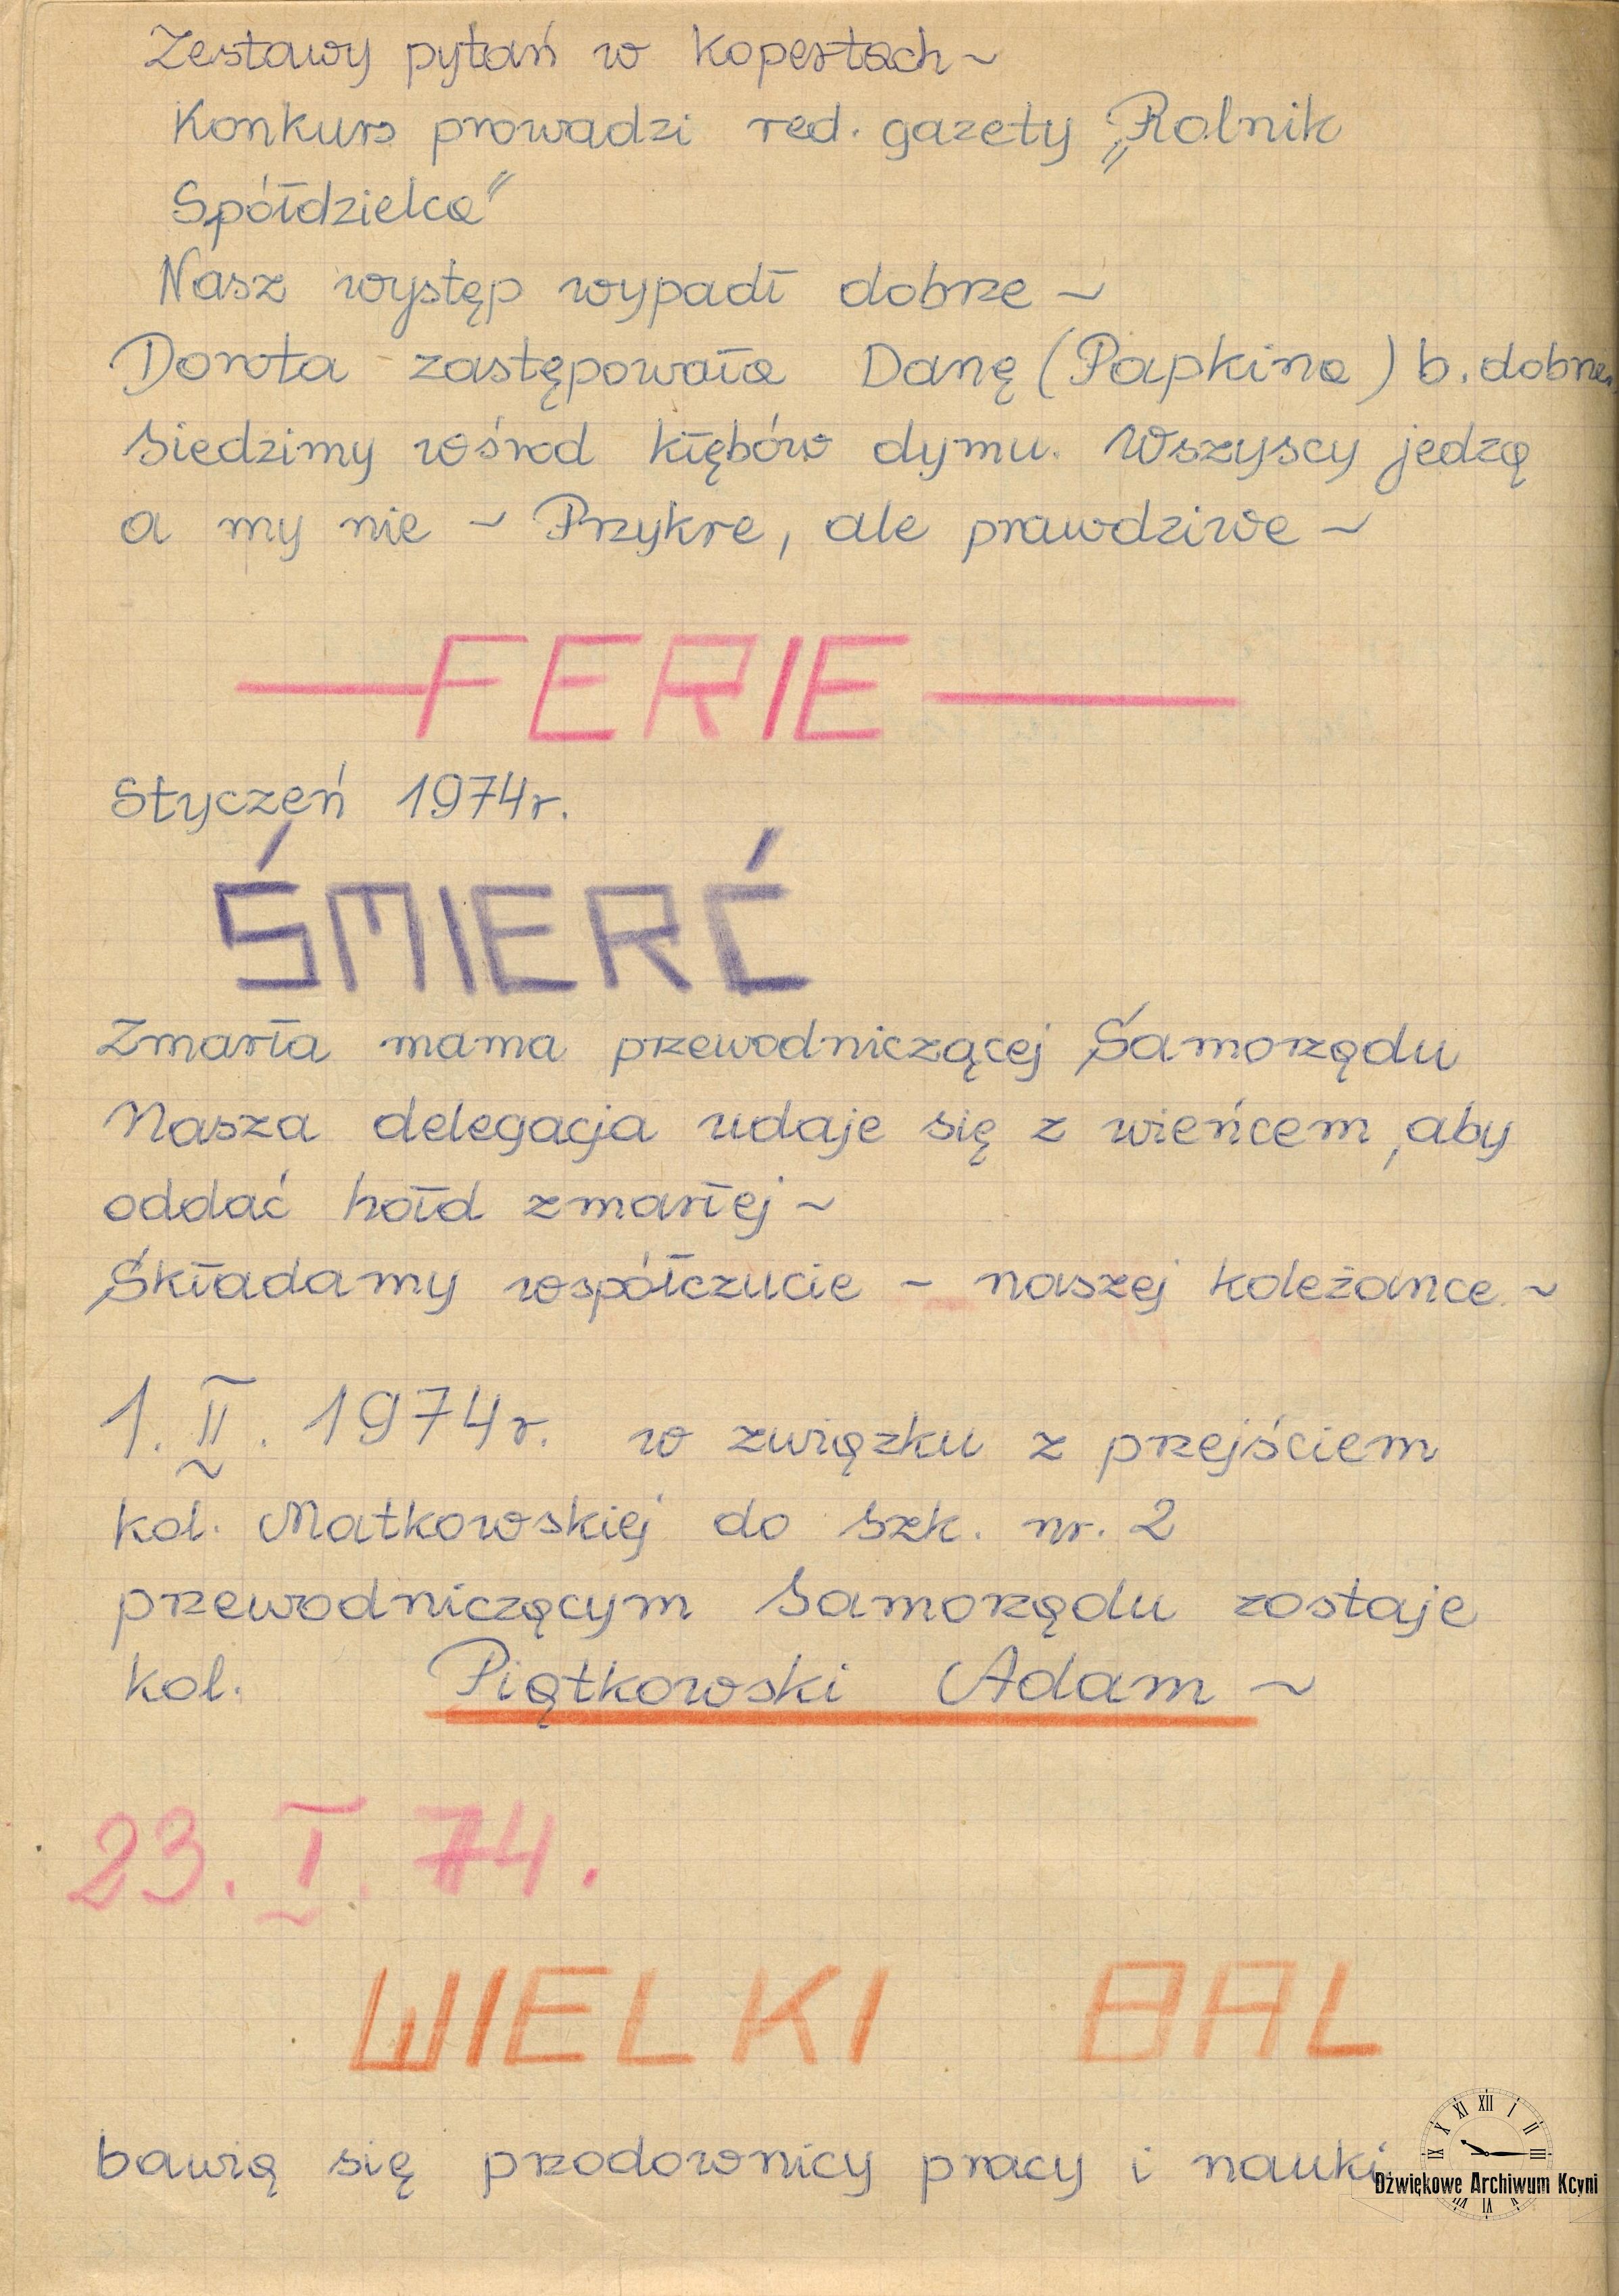 Zestawy pytań w kopertach ~
Konkurs prowadzi red. gazety „Rolnik
Spółdzielca"
Nasz występ wypadł dobrze ~
Dorota zastępowała Danę (Papkina) b. dobrze.
Siedzimy wśród kłębów dymu. Wszyscy jedzą
a my nie ~ Przykre, ale prawdziwe ~
— FERIE —
Styczeń 1974r.
ŚMIERĆ
Zmarła mama przewodniczącej Samorządu
Nasza delegacja udaje się z wieńcem, aby
oddać hołd zmarłej ~
Składamy współczucie - naszej koleżance ~
1. II. 1974r. w związku z przejściem
kol. Matkowskiej do szk. nr. 2
przewodniczącym Samorządu zostaje
kol. Piątkowski Adam ~
23. I. 74.
WIELKI BAL
bawią się przodownicy pracy i nauki.
XII I II III VI IX X XI
Dźwiękowe Archiwum Kcyni